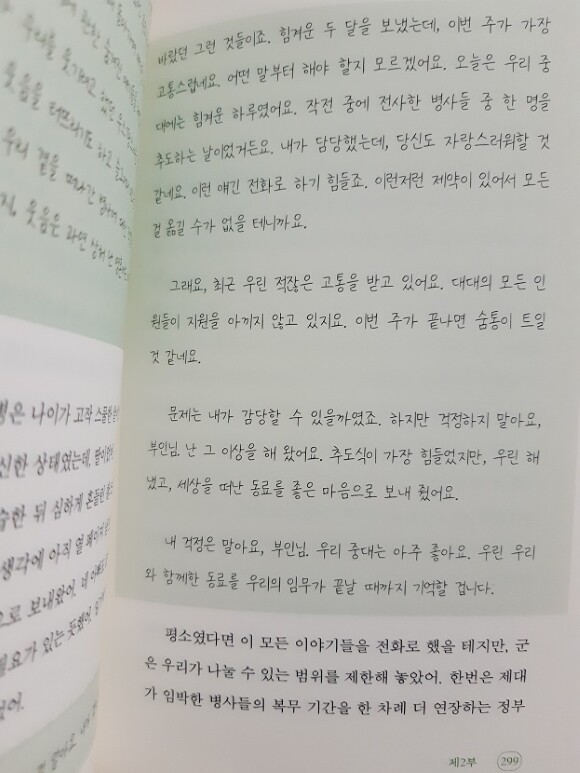 바랐던 그런 것들이죠. 힘겨운 두 달을 보냈는데, 이번 주가 가장
고통스럽네요. 어떤 말부터 해야 할지 모르겠어요. 오늘은 우리 중
대에는 힘겨운 하루였어요. 작전 중에 전사한 병사들 중 한 명을
추도하는 날이었거든요. 내가 담당했는데, 당신도 자랑스러워할 것
같네요. 이런 얘긴 전화로 하기 힘들죠. 이런저런 제약이 있어서 모든
걸 옮길 수가 없을 테니까요.
그래요, 최근 우린 적잖은 고통을 받고 있어요. 대대의 모든 인
원들이 지원을 아끼지 않고 있지요. 이번 주가 끝나면 숨통이 트일
것 같네요.
문제는 내가 감당할 수 있을까였죠. 하지만 걱정하지 말아요,
부인님. 난 그 이상을 해 왔어요. 추도식이 가장 힘들었지만, 우린 해
냈고, 세상을 떠난 동료를 좋은 마음으로 보내 줬어요.
내 걱정은 말아요, 부인님. 우리 중대는 아주 좋아요. 우린 우리
와 함께한 동료를 우리의 임무가 끝날 때까지 기억할 겁니다.
평소였다면 이 모든 이야기들을 전화로 했을 테지만, 군
은 우리가 나눌 수 있는 범위를 제한해 놓았어. 한번은 제대
가 임박한 병사들의 복무 기간을 한 차례 더 연장하는 정부
제2부 299
은 나이가 고작 스물한
신한 상태였는데,
습한 뒤 심하게 흔들린
생각에 아직 열
으로 보내왔어.
필요가 있는 듯했어.